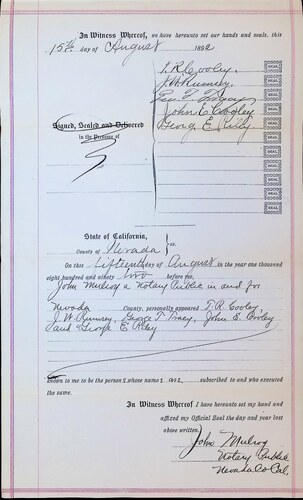 In Witness Whereof, we have hereunto set our hands and seals, this
15th day of August 1892
T. R. Cooley.
J. W. Rumsey
Geo. T. Tracy
John E. Cooley
George E. Riley
Signed, Sealed and Delivered
in the Presence of
SEAL
SEAL
SEAL
SEAL
SEAL
SEAL
SEAL
SEAL
SEAL
SEAL
SEAL
State of California,
County of Nevada } ss.
On this fifteenth day of August in the year one thousand
eight hundred and ninety two before me,
John Mulroy a Notary Public in and for
Nevada County, personally appeared T. R. Cooley
J. W. Rumsey, George T. Tracy, John E. Cooley
and George E. Riley
known to me to be the person s whose name s are subscribed to and who executed
the same.
In Witness Whereof I have hereunto set my hand and
affixed my Official Seal the day and year last
above written.
John Mulroy
Notary Public
Nevada Co Cal.